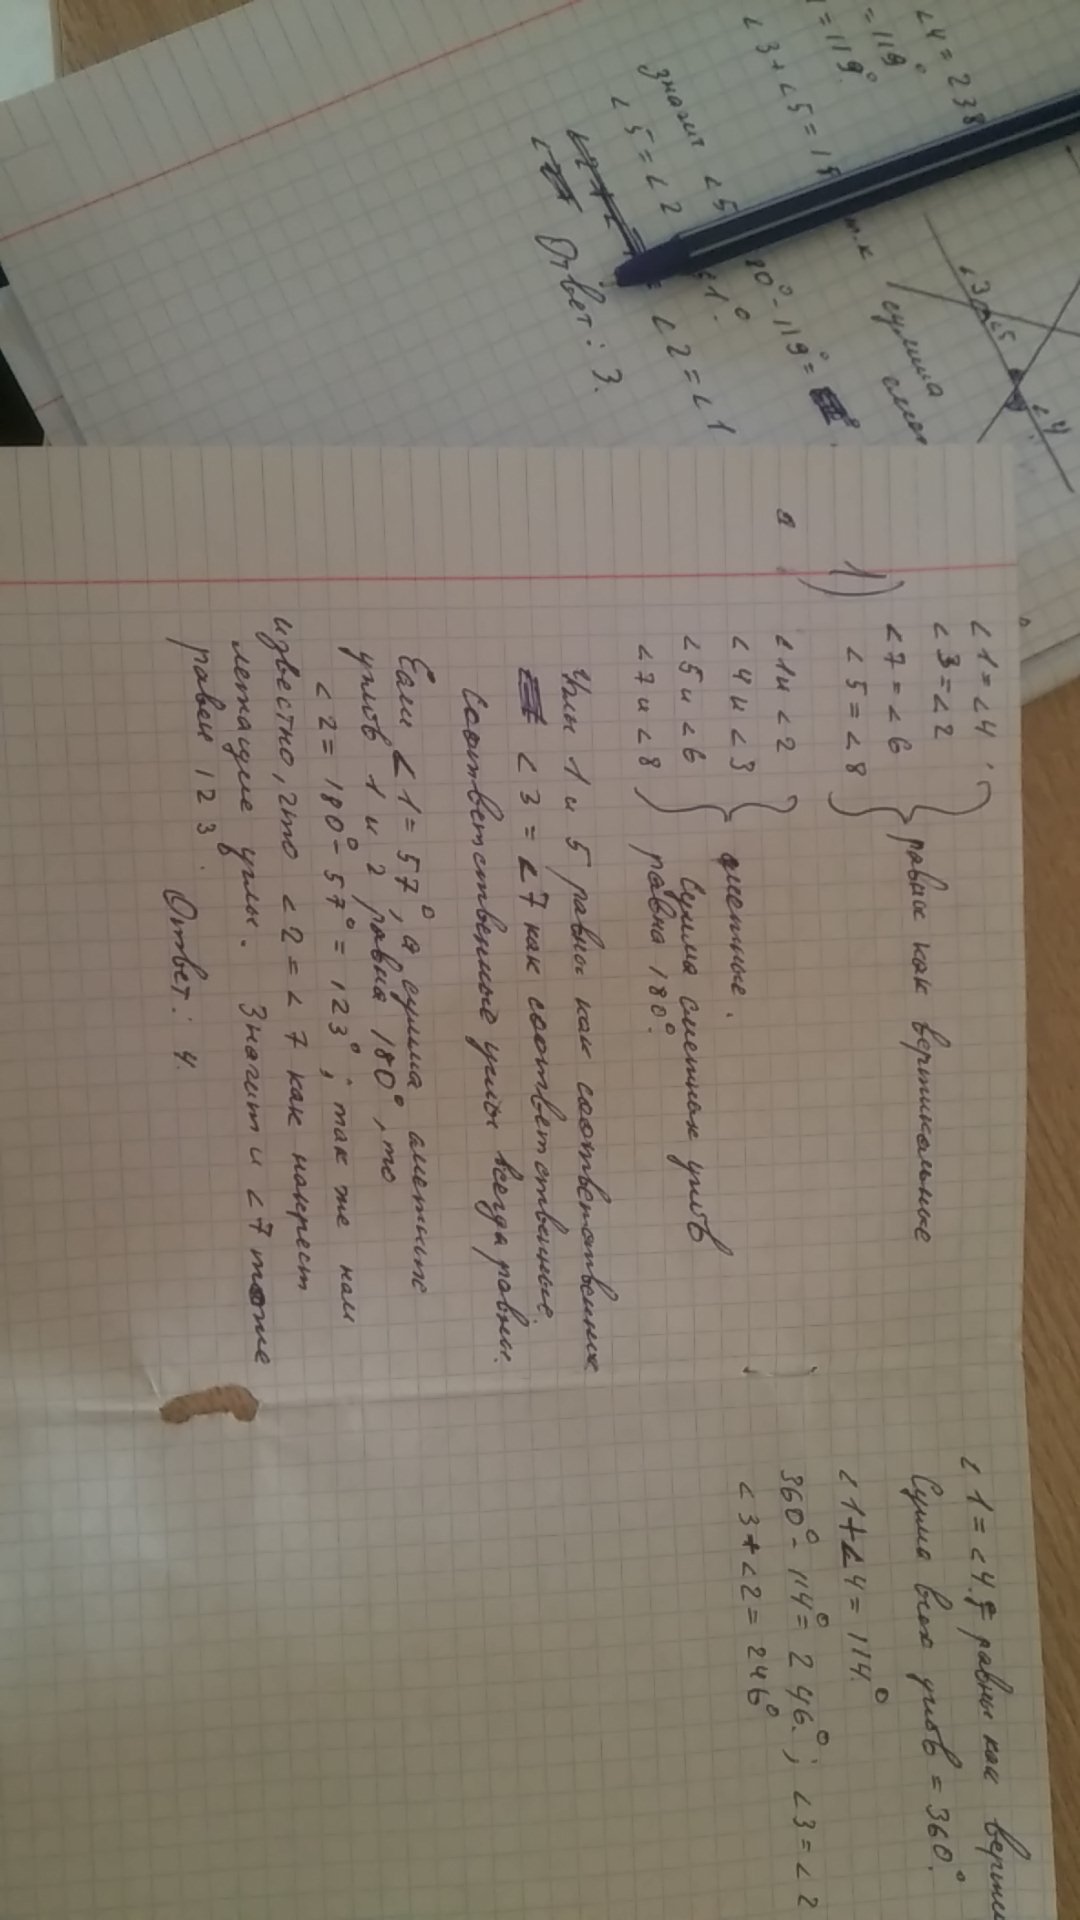 ∠4 = 238
= 119°
1 = 119°
∠3 + ∠5 = 18
т.к сумма смеж
значит ∠5 80° - 119° =
∠5 = ∠2 ∠1°.
∠2 = ∠1
Ответ: 3.
∠3 ∠5
∠4
1)
∠1 = ∠4,
∠3 = ∠2
∠7 = ∠6
∠5 = ∠8
равных как вертикальные
в
∠1 и ∠2
∠4 и ∠3
∠5 и ∠6
∠7 и ∠8
смежные.
Сумма смежных углов
равна 180°.
Углы 1 и 5 равны как соответственные
∠3 = ∠7 как соответственные.
Соответственные углы всегда равны.
Если ∠1 = 57°, а сумма смежных
углов 1 и 2 равна 180°, то
∠2 = 180° - 57° = 123°; так же нам
известно, что ∠2 = ∠7 как накрест
лежащие углы. Значит и ∠7 тоже
равен 123°. Ответ: 4.
∠1 = ∠4. равны как верти
Сумма всех углов = 360°.
∠1 + ∠4 = 114°
360° - 114° = 246°; ∠3 = ∠2
∠3 + ∠2 = 246°